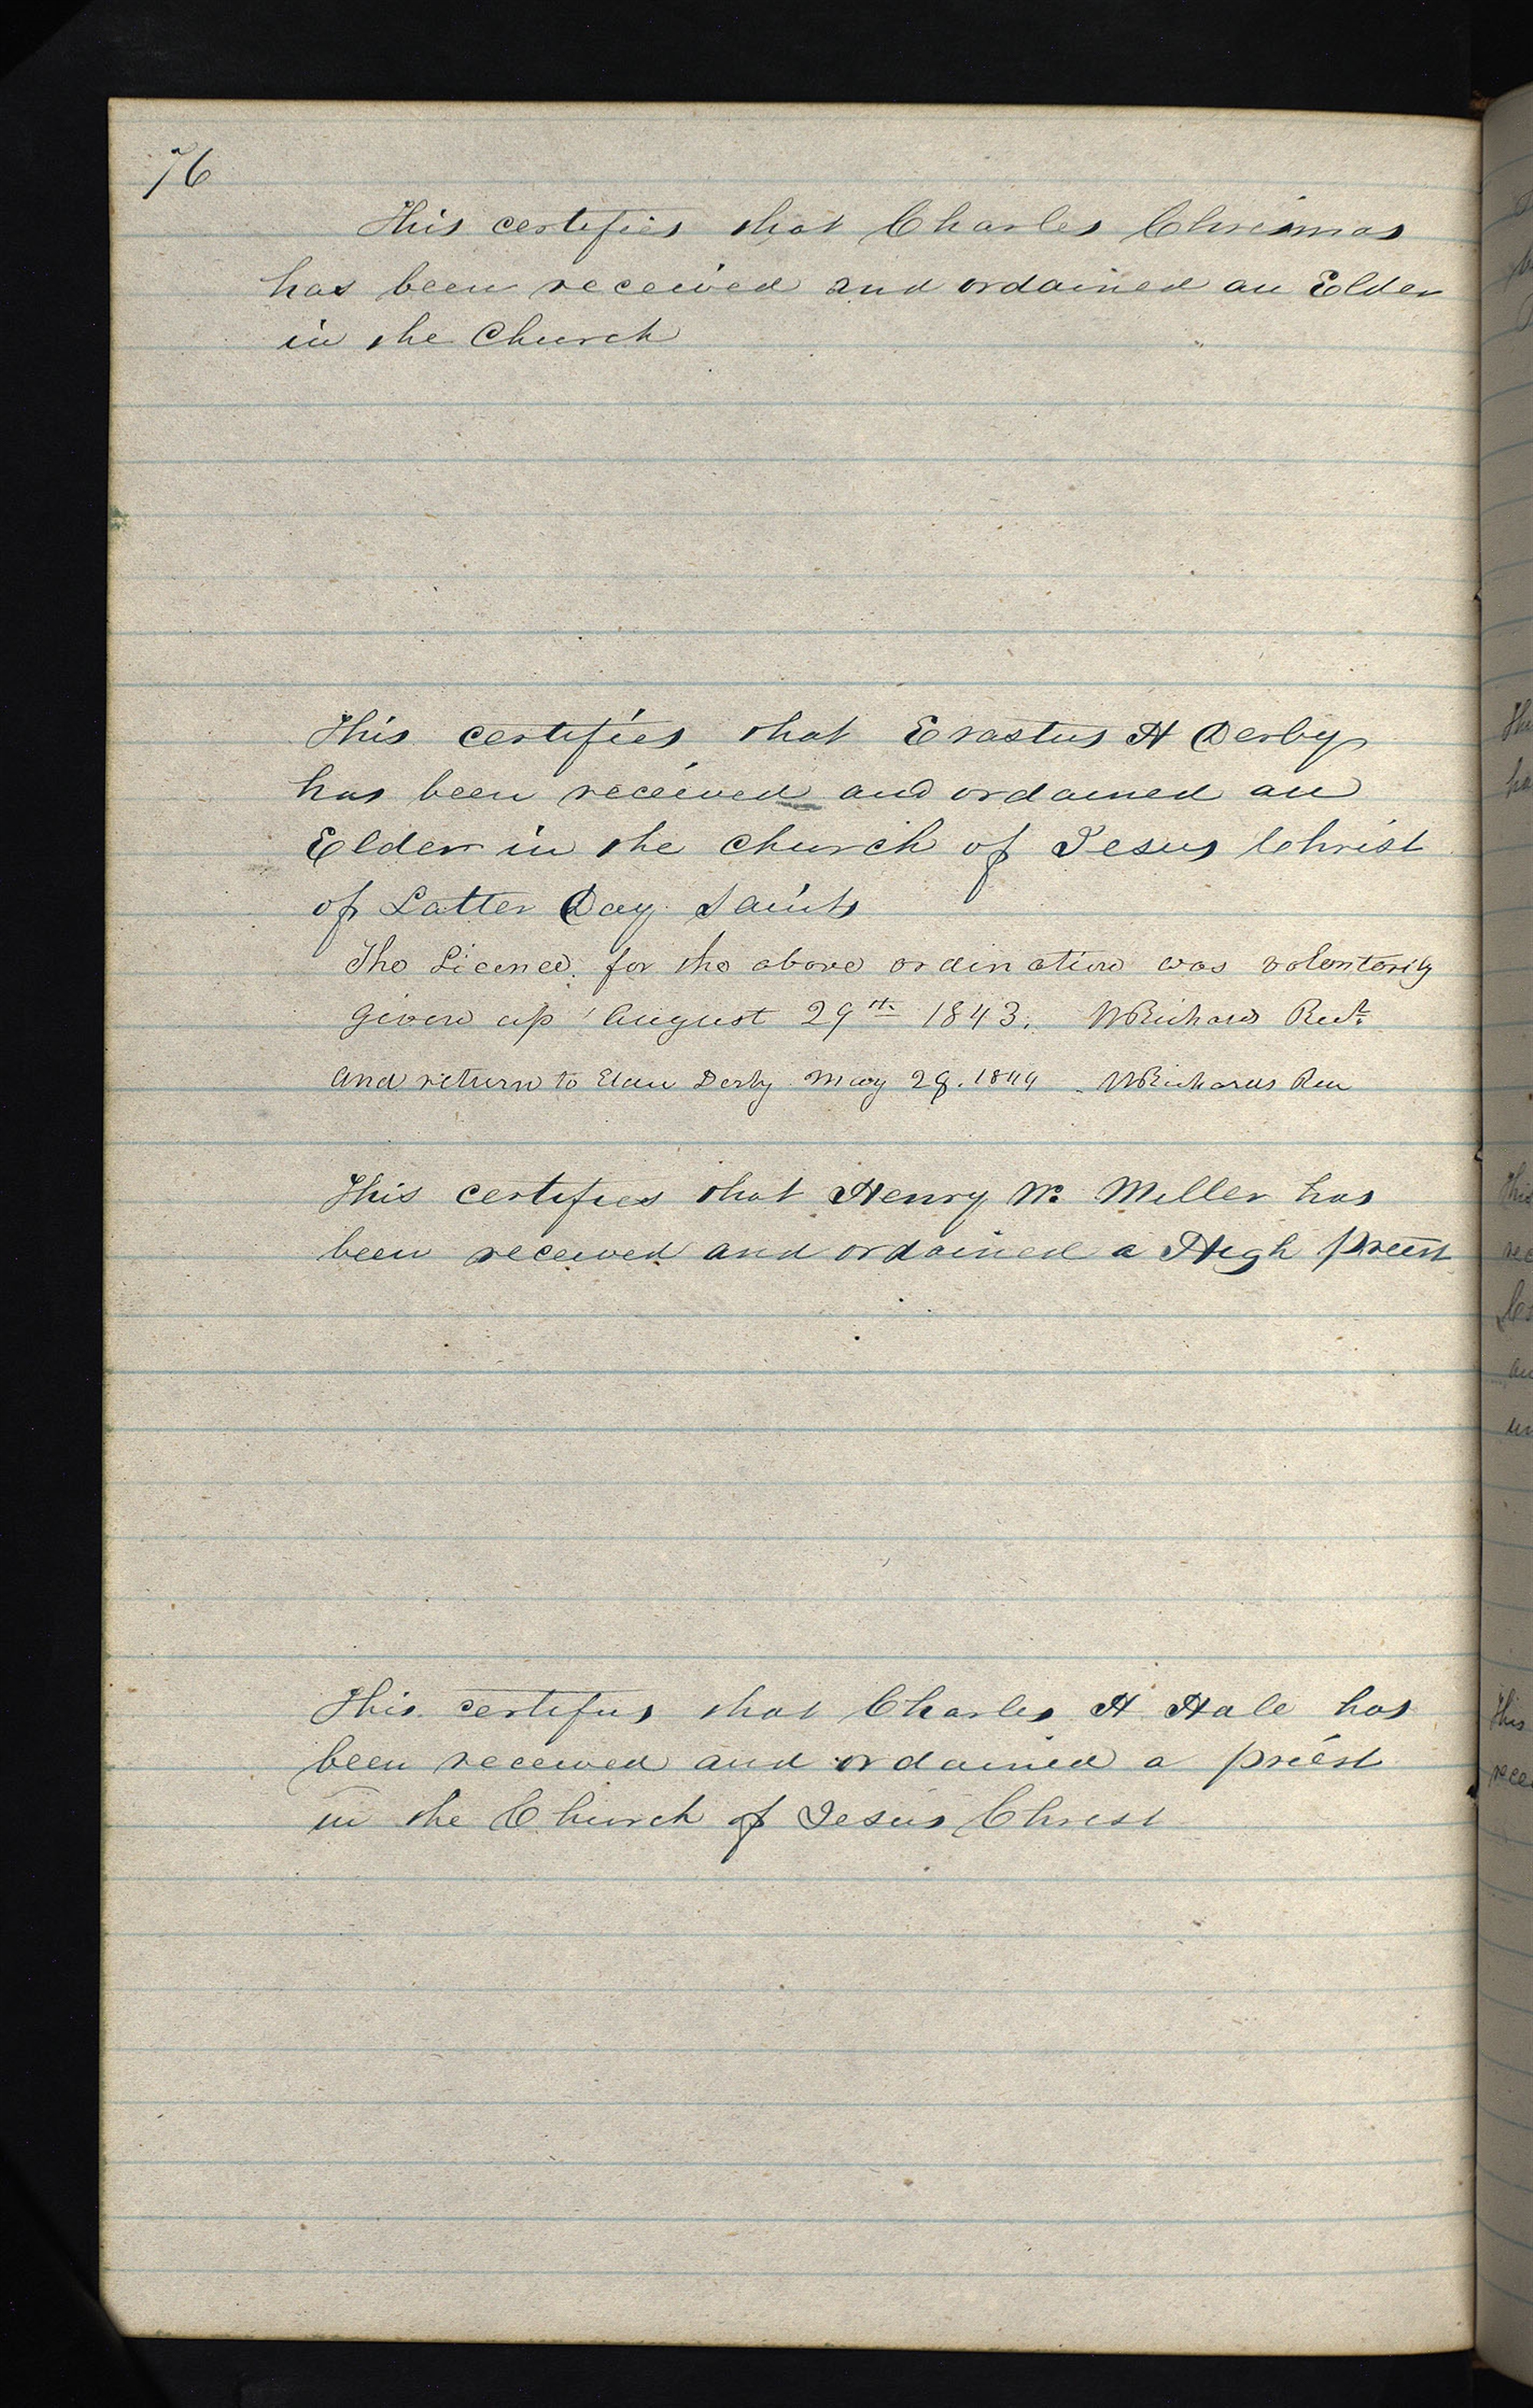 76
This certifies that Charles Chrismas
has been received and ordained an Elder
in the Church
This certifies that Erastus H Derby
has been received and ordained an
Elder in the church of Jesus Christ
of Latter Day Saints
The Licence for the above ordination was volontarily
given up August 29th 1843. WRichards Recr.
and return to Elder Derby May 28. 1844 WRichards Rec
This certifies that Henry W. Miller has
been received and ordained a High Priest
This certifies that Charles H Hale has
been received and ordained a priest
in the Church of Jesus Christ